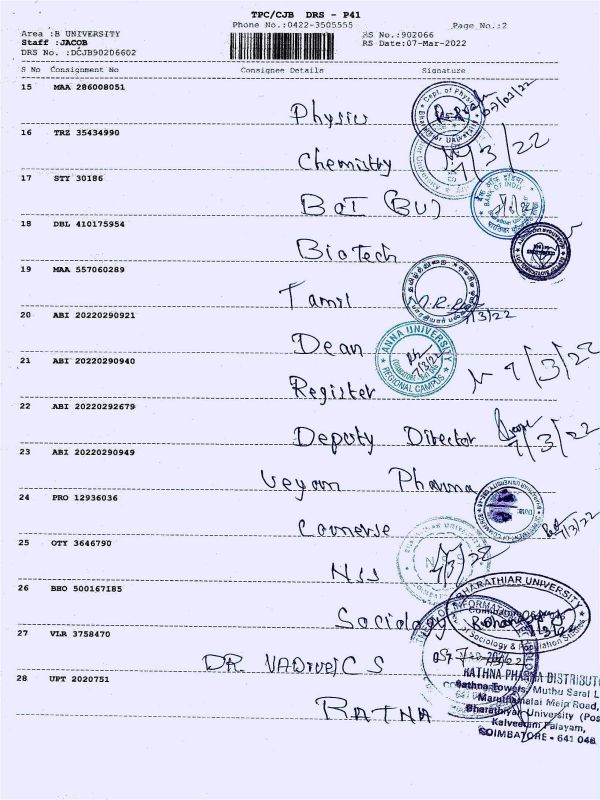 TPC/CJB DRS - P41
Phone No.:0422-3505555 Page No.:2
Area :B UNIVERSITY RS No.:902066
Staff :JACOB RS Date:07-Mar-2022
DRS No. :DCJB90206602
S No Consignment No Consignee Details Signature
15 MAA 286008051
Physics
16 TRZ 35434990
Chemistry 7/3/22
17 STY 30186
BOI (BU)
BANK OF INDIA
18 DBL 410175954
Biotech
19 MAA 557060289
Tamil
7/3/22
20 ABI 20220290921
Dean
ANNA UNIVERSITY
REGIONAL CAMPUS
7/3/22
21 ABI 20220290940
Register 7/3/22
22 ABI 20220292679
Deputy Director 7/3/22
23 ABI 20220290949
Veyam Pharma
24 PRO 12936036
Comerse 7/3/22
25 OTY 3646790
NSS 7/3/22
26 BHO 500167185
Sociology
BHARATHIAR UNIVERSITY
of Sociology & Population Studies
27 VLR 3758470
DR. VADIVEL C S
28 UPT 2020751
RATNA
RATHNA PHARMA DISTRIBUTO
Rathna Towers, Muthu Saral L
Maruthamalai Main Road,
Bharathiyar University (Pos
Kalveeram Palayam,
COIMBATORE - 641 046